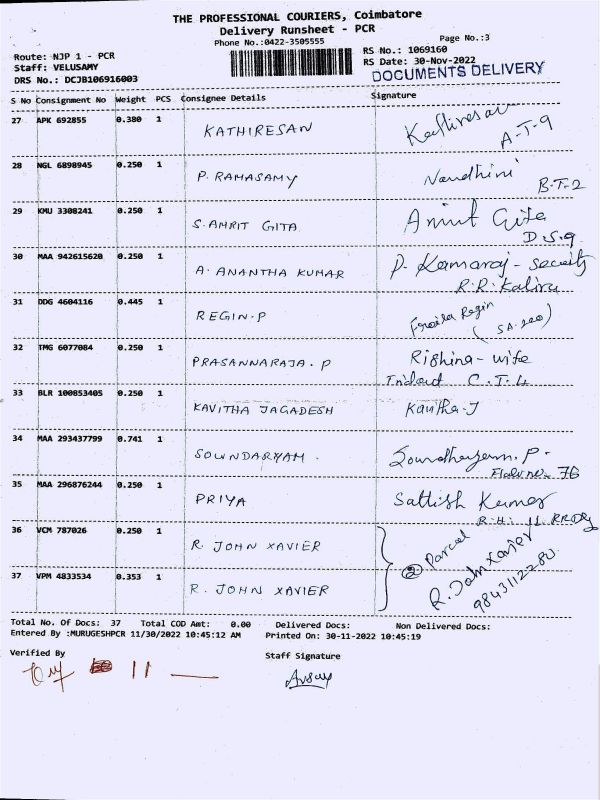 THE PROFESSIONAL COURIERS, Coimbatore
Delivery Runsheet - PCR
Phone No.:0422-3505555
Page No.:3
Route: NJP 1 - PCR
RS No.: 1069160
Staff: VELUSAMY
RS Date: 30-Nov-2022
DRS No.: DCJB106916003
DOCUMENTS DELIVERY
S No Consignment No Weight PCS Consignee Details Signature
27 APK 692855 0.380 1 KATHIRESAN Kathiresan
A-T-9
28 NGL 6898945 0.250 1 P. RAMASAMY Nandhini
B-T-2
29 KMU 3308241 0.250 1 S. AMRIT GITA Amrit Gita
D.S.9
30 MAA 942615620 0.250 1 A. ANANTHA KUMAR P. Kamaraj - security
R.R.
31 DDG 4604116 0.445 1 REGIN.P Regin
32 TMG 6077084 0.250 1 PRASANNARAJA. P Rishina - wife
C.T.4
33 BLR 100853405 0.250 1 KAVITHA JAGADESH Kavitha-J
34 MAA 293437799 0.741 1 SOUNDARYAM. Soundharyam. P.
76
35 MAA 296876244 0.250 1 PRIYA Sattish Kumar
36 VCM 787026 0.250 1 R. JOHN XAVIER 2 Parcel
37 VPM 4833534 0.353 1 R. JOHN XAVIER R. John Xavier
Total No. Of Docs: 37 Total COD Amt: 0.00 Delivered Docs: Non Delivered Docs:
Entered By :MURUGESHPCR 11/30/2022 10:45:12 AM Printed On: 30-11-2022 10:45:19
Verified By Staff Signature
11